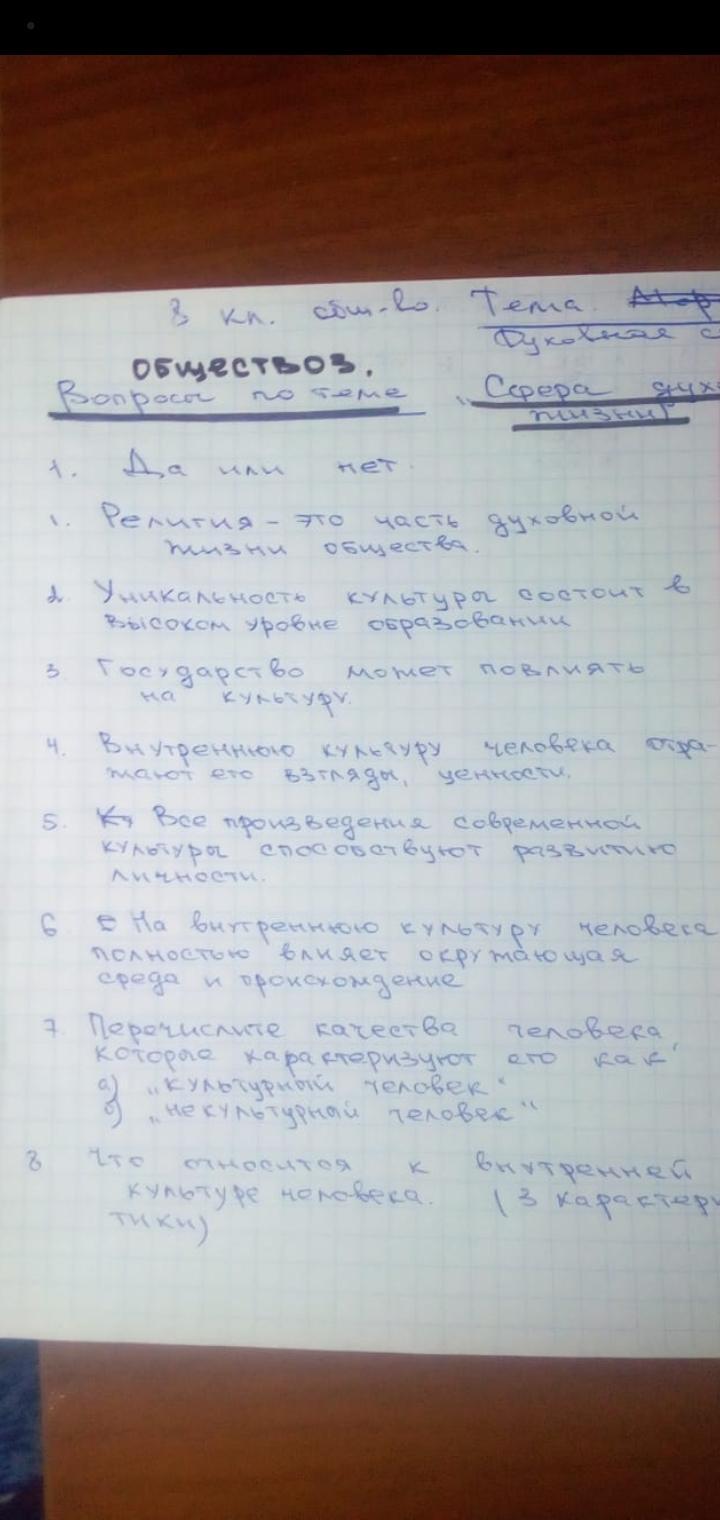 8 кл. общ-во. Тема.
Духовная с
ОБЩЕСТВОЗ.
Вопросы по теме „Сфера дух
жизни"
1. Да или нет.
1. Религия - это часть духовной
жизни общества.
2. Уникальность культуры состоит в
высоком уровне образовании
3 Государство может повлиять
на культуру.
4. Внутреннюю культуру человека отра-
жают его взгляды, ценности.
5. Все произведения современной
культуры способствуют развитию
личности.
6 На внутреннюю культуру человека
полностью влияет окружающая
среда и происхождение
7. Перечислите качества человека,
которые характеризуют его как
а) „культурный человек"
б) „некультурный человек"
8 Что относится к внутренней
культуре человека. (3 характери
тики)